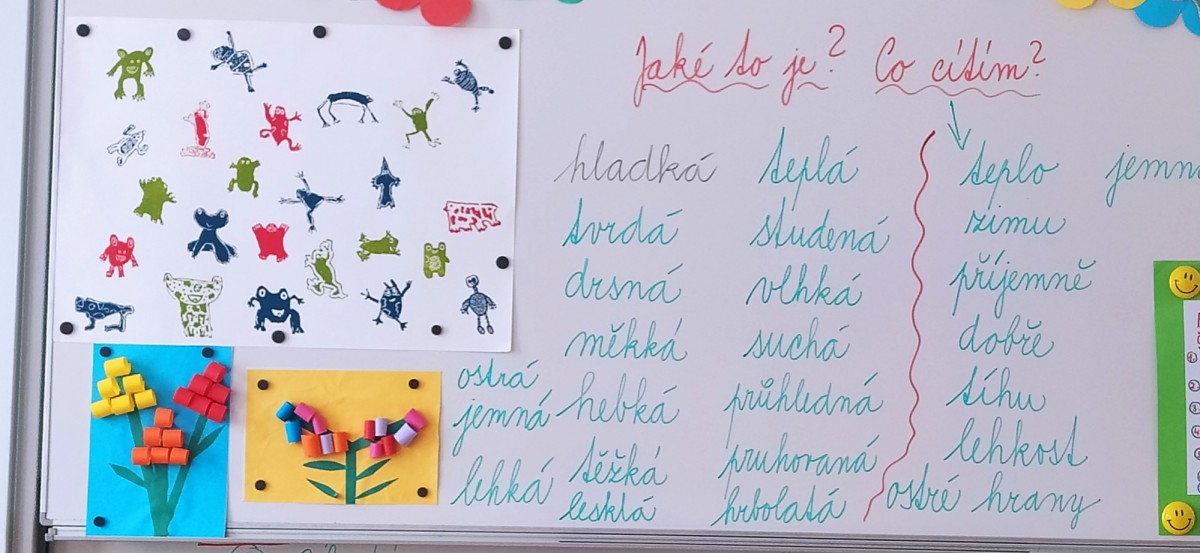 Jaké to je? Co cítím?
hladká teplá teplo
tvrdá studená zimu
drsná vlhká příjemně
měkká suchá dobře
ostrá
jemná hebká průhledná tíhu
těžká pruhovaná lehkost
lehká
lesklá hrbolatá ostré hrany